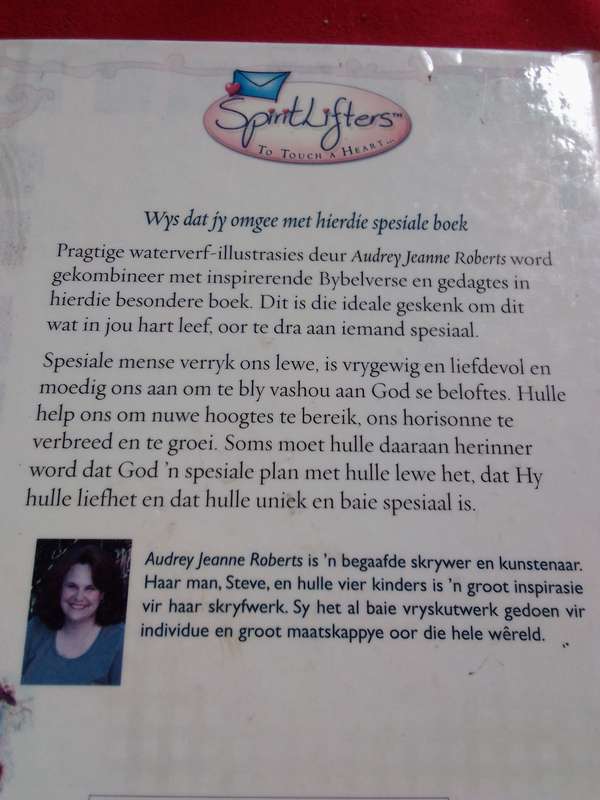 SpiritLifters™
TO TOUCH A HEART...
Wys dat jy omgee met hierdie spesiale boek
Pragtige waterverf-illustrasies deur Audrey Jeanne Roberts word
gekombineer met inspirerende Bybelverse en gedagtes in
hierdie besondere boek. Dit is die ideale geskenk om dit
wat in jou hart leef, oor te dra aan iemand spesiaal.
Spesiale mense verryk ons lewe, is vrygewig en liefdevol en
moedig ons aan om te bly vashou aan God se beloftes. Hulle
help ons om nuwe hoogtes te bereik, ons horisonne te
verbreed en te groei. Soms moet hulle daaraan herinner
word dat God 'n spesiale plan met hulle lewe het, dat Hy
hulle liefhet en dat hulle uniek en baie spesiaal is.
Audrey Jeanne Roberts is 'n begaafde skrywer en kunstenaar.
Haar man, Steve, en hulle vier kinders is 'n groot inspirasie
vir haar skryfwerk. Sy het al baie vryskutwerk gedoen vir
individue en groot maatskappye oor die hele wêreld.